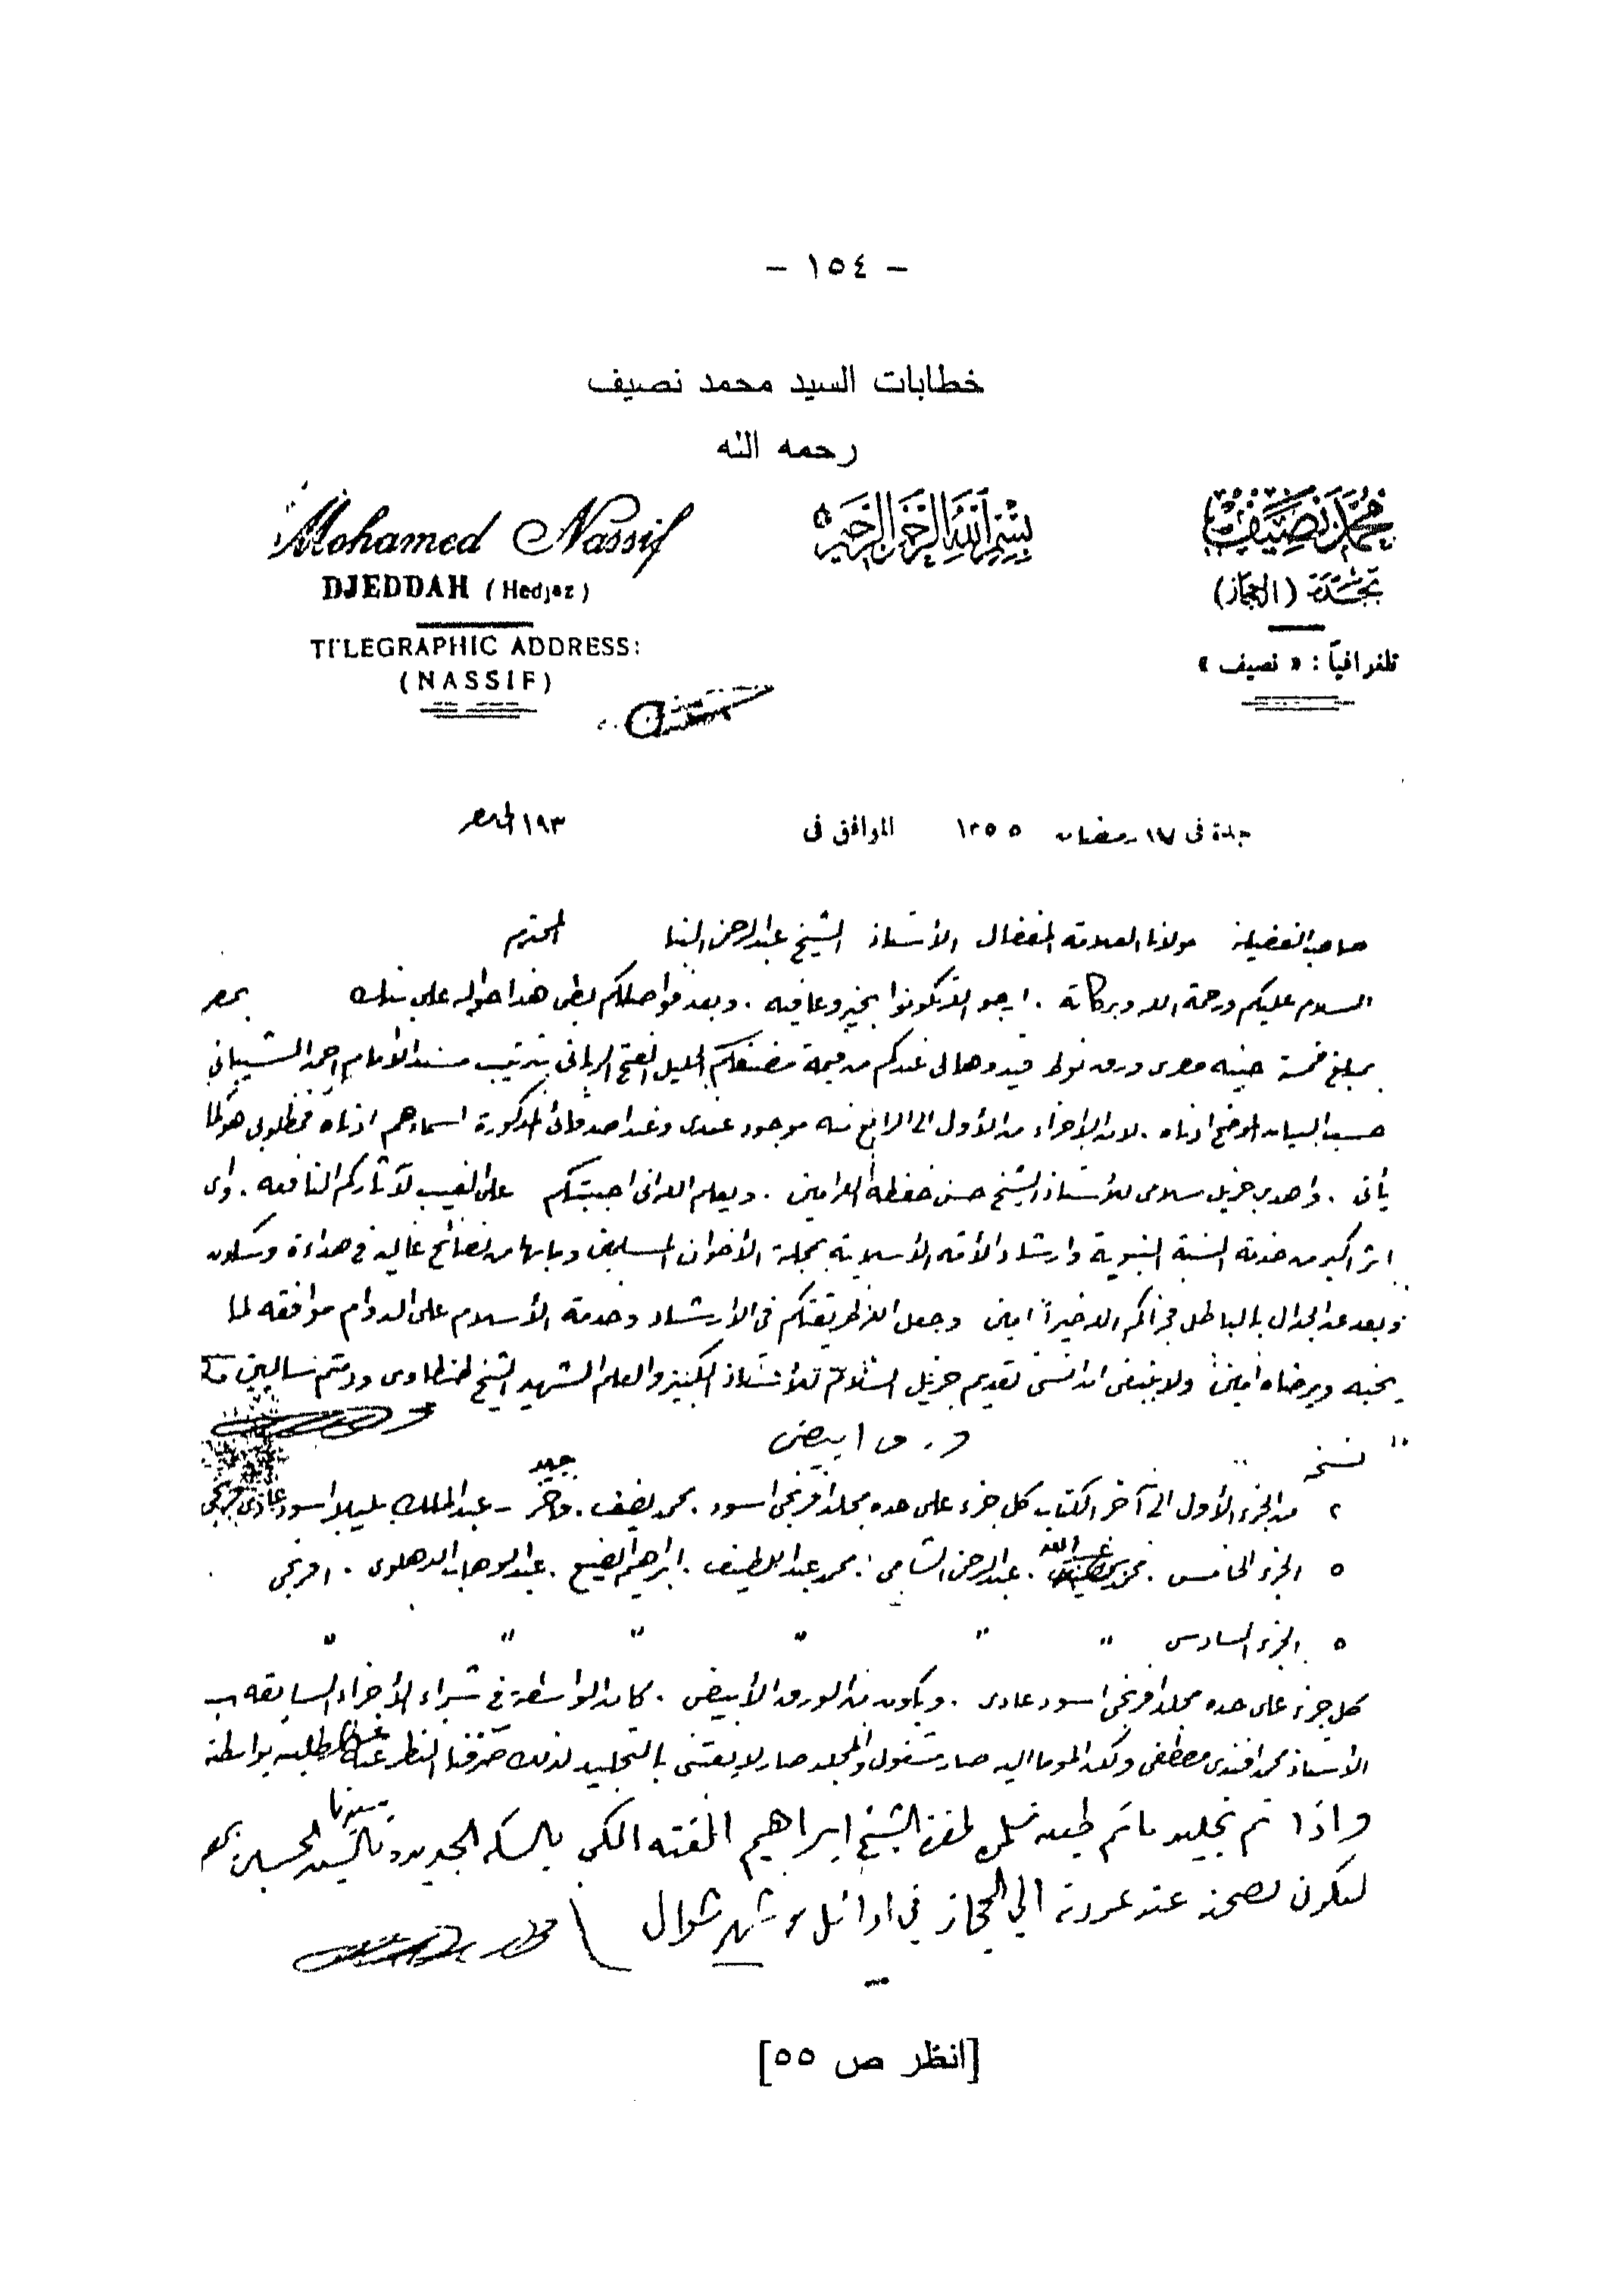 - ١٥٤ -
خطابات السيد محمد نصيف
رحمه الله
Mohamed Nassif
DJEDDAH (Hedjaz)
TELEGRAPHIC ADDRESS:
(NASSIF)
بسم الله الرحمن الرحيم
محمد نصيف
بجدة (الحجاز)
تلغرافياً : « نصيف »
جدة في ١٧ رمضان ١٣٥٥ الموافق في ١٩٣ الى مصر
صاحب الفضيلة مولانا العلامة المفضال الأستاذ الشيخ عبد الرحمن البنا المحترم
السلام عليكم ورحمة الله وبركاته . ارجو الله تكونوا بخير وعافيه . وبعد فواصلكم بطى هذا حواله على بنك بمصر
بمبلغ خمسة جنيه مصرى ورق نوط قيدوها لى عندكم من قيمة مصنفكم الجليل الفتح الربانى بترتيب مسند الأمام احمد الشيبانى
حسب البيان الموضح ادناه . لان الأجزاء من الأول الى الرابع منه موجود عندى وعند اصدقائى المذكورة اسماءهم ادناه فمطلوبى هو لما
يأتى . واهدى جزيل سلامى للأستاذ الشيخ حسن حفظه الله امين . ويعلم الله انى احببتكم على الغيب لآثاركم النافعه . واى
اثر اكبر من خدمة السنة النبوية وارشاد الأمة الأسلامية بمجلة الأخوان المسلمين وما بها من نصائح غاليه فى هداءة وسكون
وبعد عن الجدال بالباطل فجزاكم الله خيراً امين وجعل الله طريقتكم فى الارشاد وخدمة الأسلام على الدوام موافقه لما
يحبه ويرضاه امين ولا ينبغى ان انسى تقديم جزيل السلام للأستاذ الكبير والعلم الشهير الشيخ طنطاوى ودمتم سالمين
ورق ابيض
نسخه
٢ من الجزء الأول الى آخر الكتاب كل جزء على حده مجلد افرنجى اسود . محمد نصيف . فاخر جيد - عبد الملك بليبل اسود عادى افرنجى
٥ الجزء الخامس . عبد الله . عبد الرحمن الشامى . محمد عبد اللطيف . ابراهيم الضبع . عبد الوهاب الدهلوى . افرنجى
٥ الجزء السادس " " " " " "
كل جزء على حده مجلد افرنجى اسود عادى . ويكون من الورق الأبيض . كان الواسطة فى شراء الأجزاء السابقه
الأستاذ محمد افندى مصطفى ولكن الموما اليه صار مشغول والمجلد صار لا يعتنى بالتجليد لذلك صرفنا النظر عن طلبه بواسطته
واذا تم تجليد ما تم طبعه تسلم لحضرة الشيخ ابراهيم الفته المكي بالسكه الجديده بسيدنا الحسين بمصر
لتكون لصحبته عند عودته الى الحجاز في اوائل شهر شوال
[انظر ص ٥٥]